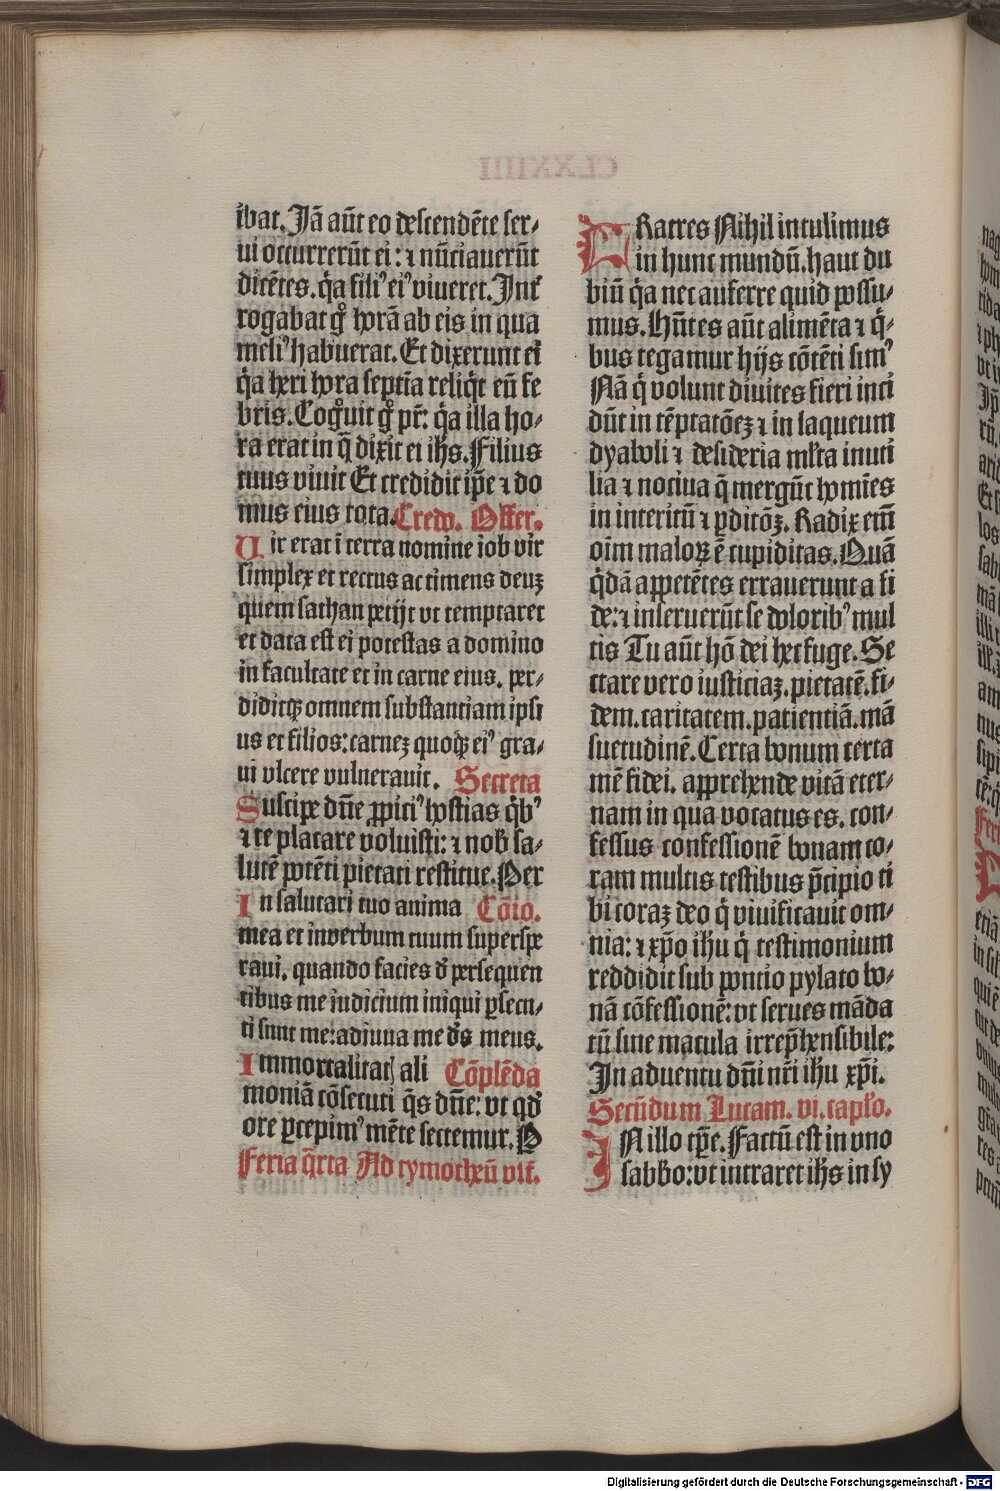 ibat. Jā aūt eo descendēte ser⸗
ui occurrerūt ei : ⁊ nūciauerūt
dicētes. q̄a fili⁹ ei⁹ viueret. Int̄
rogabat g̊ horā ab eis in qua
meli⁹ habuerat. Et dixerunt ei
q̄a heri hora septīa reliq̄t eū fe
bris. Cog̊uit g̊ pr̄: q̄a illa ho⸗
ra erat in q̄ dixit ei ihs. Filius
tuus viuit Et credidit ip̄e ⁊ do
mus eius tota. Credo. Offer.
Uir erat ī terra nomine iob vir
simplex et rectus ac timens deuʒ
quem sathan petijt vt temptaret
et data est ei potestas a domino
in facultate et in carne eius. per⸗
diditqꝫ omnem substantiam ipsi
us et filios: carneʒ quoqꝫ ei⁹ gra⸗
ui vlcere vulnerauit. Secreta
Suscipe dn̄e ꝓpici⁹ hostias q̄b⁹
⁊ te placare voluisti: ⁊ nob̄ sa⸗
lutē potēti pietati restitue. Per
In salutari tuo anima Cōio.
mea et in verbum tuum superspe
raui. quando facies d̄ persequen
tibus me iudicium iniqui ꝑsecu⸗
ti sunt me: adiuua me d̄s meus.
Immortalitat ali Cōplēda
moniā cōsecuti q̄s dn̄e: vt qd̄
ore ꝑcepim⁹ mēte sectemur. P
Feria q̄rta Ad tymotheū vlt̄.
FRatres Nihil intulimus
in hunc mundū. haut du
biū q̄a nec auferre quid possu⸗
mus. Hn̄tes aūt alimēta ⁊ q̄⸗
bus tegamur hijs cōtēti sim⁹
Nā q̄ volunt diuites fieri inci
dūt in tēptatōeʒ ⁊ in laqueum
dyaboli ⁊ desideria ml̄ta inuti
lia ⁊ nociua q̄ mergūt homīes
in interitū ⁊ ꝑditōʒ. Radix em̄
oīm maloꝝ ē cupiditas. Quā
q̄dā appetētes errauerunt a fi
de: ⁊ inseruerūt se dolorib⁹ mul
tis Tu aūt hō dei hec fuge. Se
ctare vero iusticiaʒ. pietatē. fi⸗
dem. caritatem. patientiā. mā
suetudinē. Certa bonum certa
mē fidei. apprehende vitā eter⸗
nam in qua vocatus es. con⸗
fessus confessionē bonam co⸗
ram multis testibus p̄cipio ti
bi coraʒ deo q̄ viuificauit om⸗
nia: ⁊ xp̄o ihu q̄ testimonium
reddidit sub poncio pylato bo⸗
nā cōfessionē: vt serues māda
tū sine macula irrep̄hensibile:
In aduentu dn̄i nr̄i ihu xp̄i.
Secūdum Lucam. vi. capl̄o.
IN illo tp̄e. Factū est in vno
sabbo: vt intraret ihs in sy
Digitalisierung gefördert durch die Deutsche Forschungsgemeinschaft - DFG